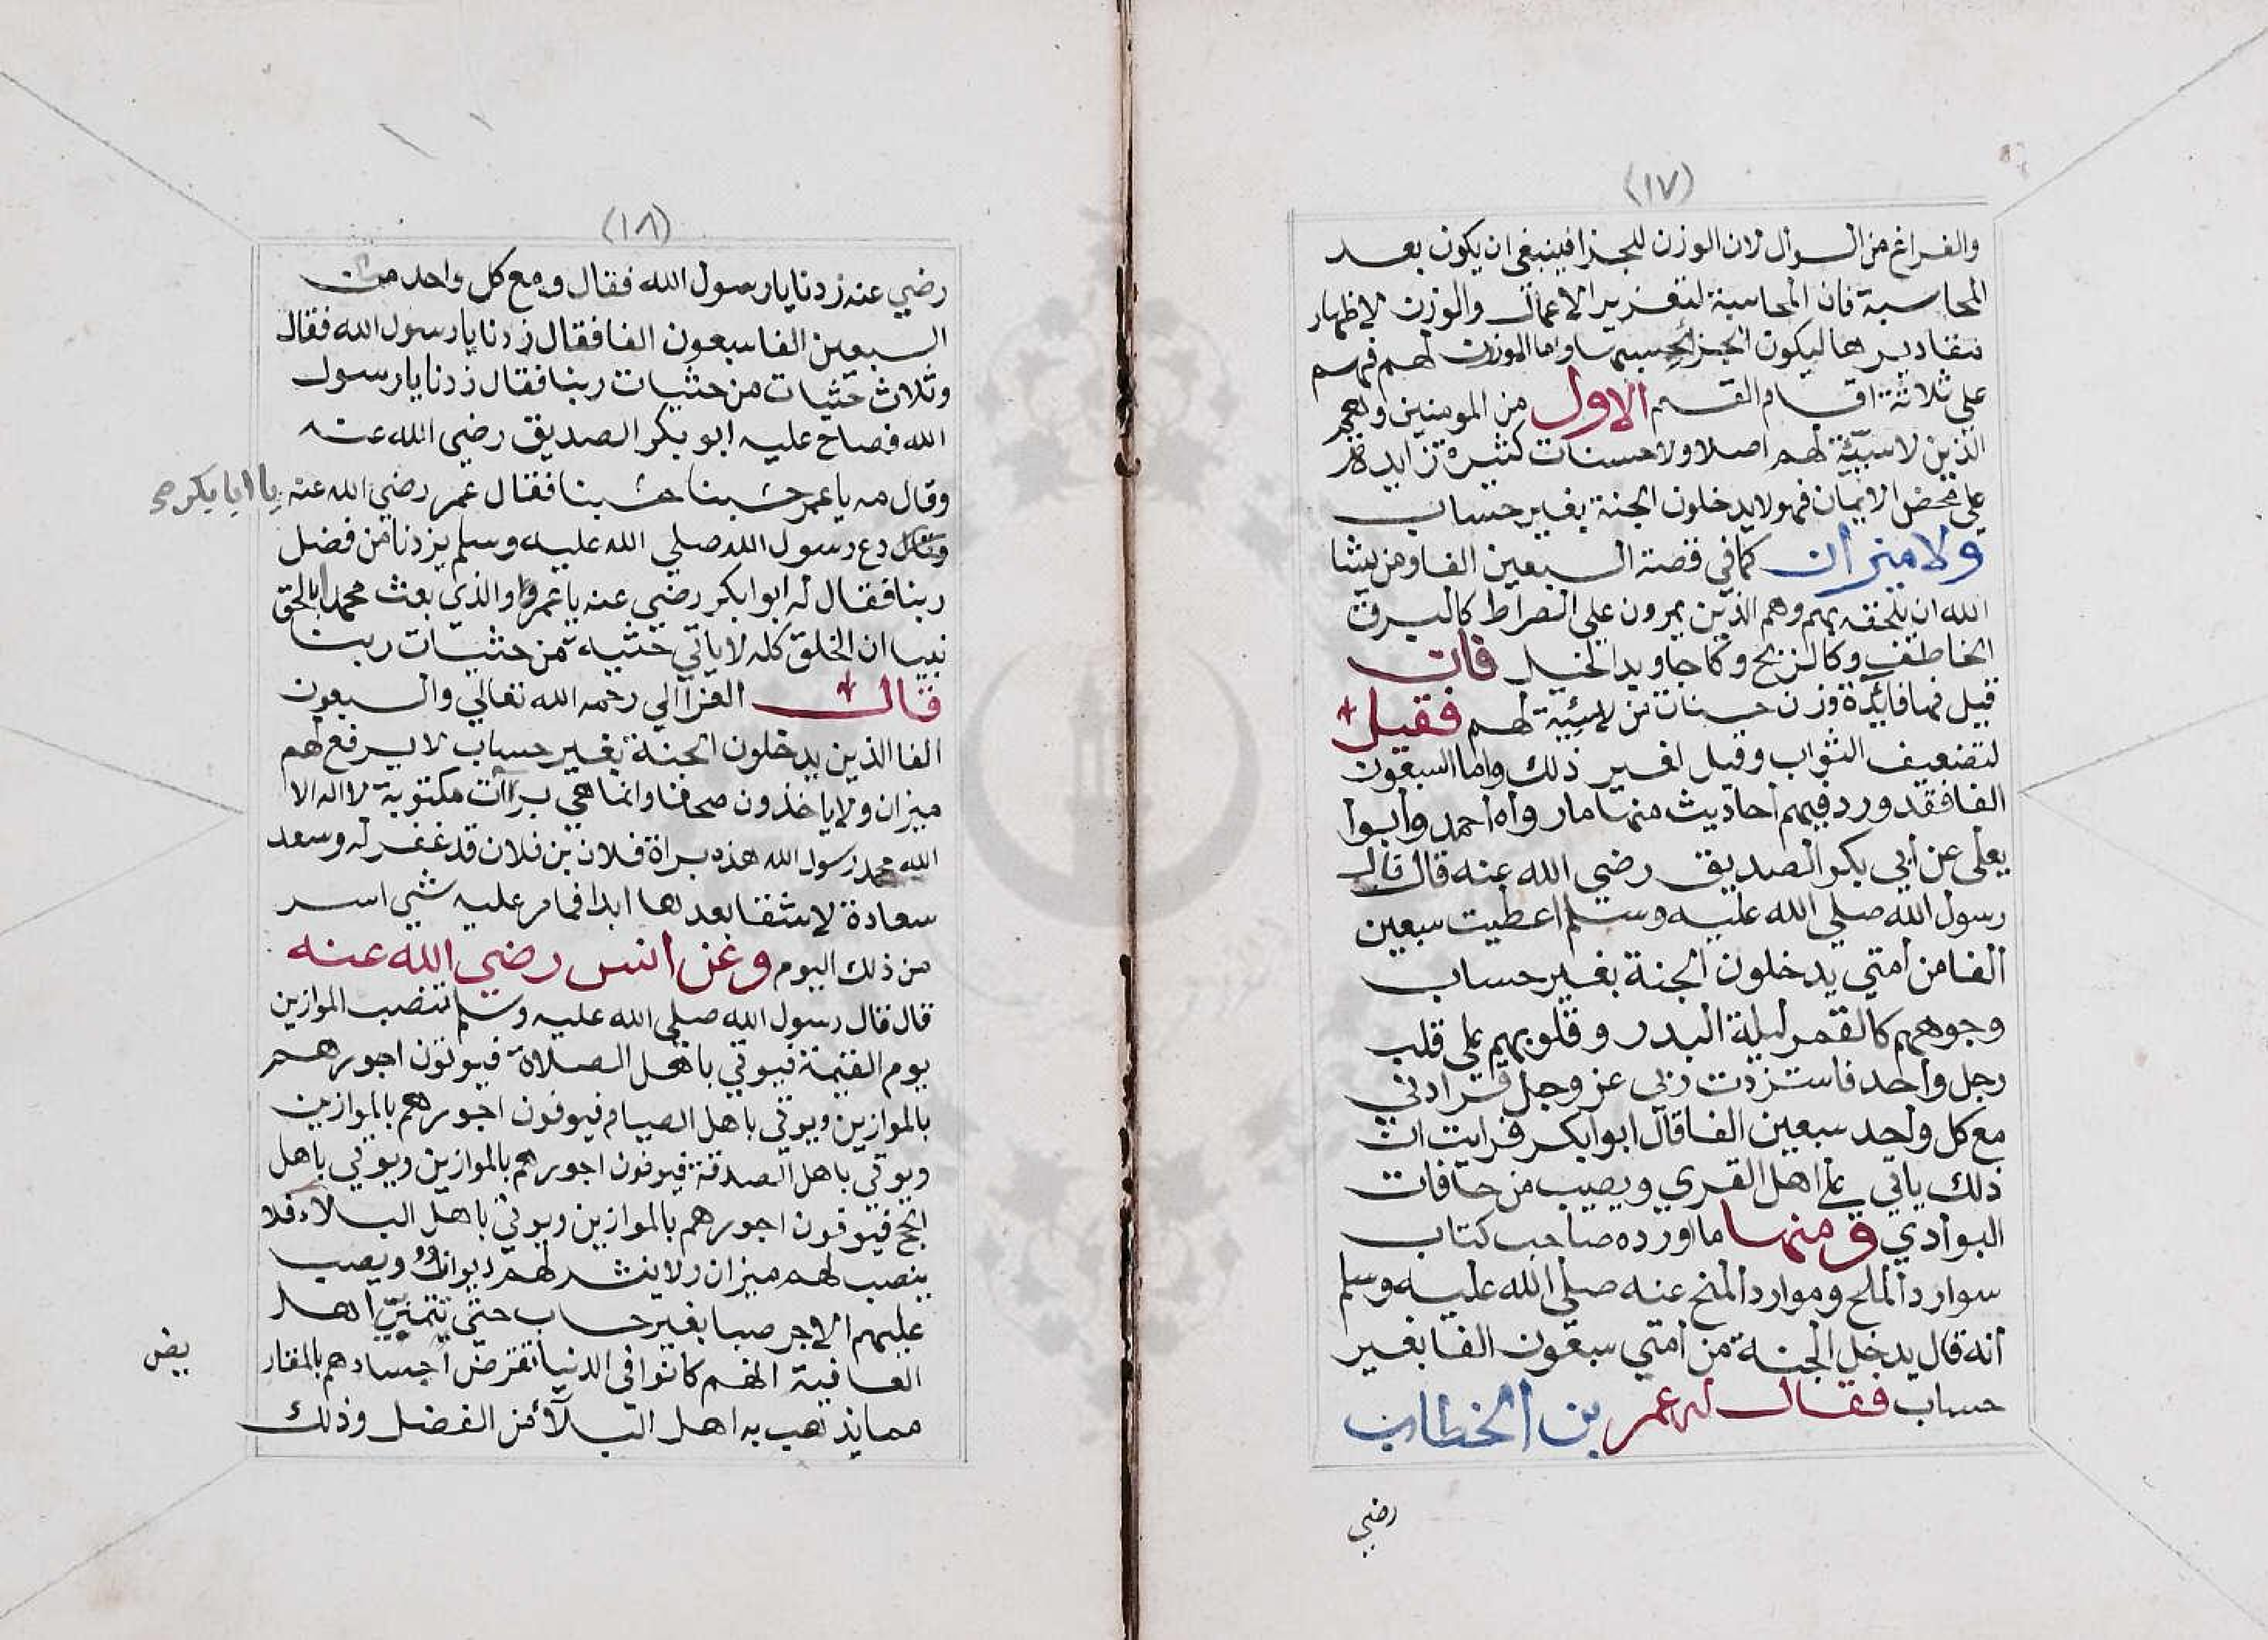 (١٧)
والفراغ من السوال لان الوزن للجزا فينبغي ان يكون بعد
المحاسبة فان المحاسبة لتقرير الاعمال والوزن لاظهار
مقاديرها ليكون الجزا بحسبها واما الموزون لهم فهم
على ثلاثة اقسام القسم الاول من المومنين وهم
الذين لا سيئة لهم اصلا ولا حسنات كثيرة زايدة
على محض الايمان فهولا يدخلون الجنة بغير حساب
ولا ميزان كما في قصة السبعين الفا ومن يشا
الله ان يلحقه بهم وهم الذين يمرون على الصراط كالبرق
الخاطف وكالريح وكاجاويد الخيل فان
قيل فما فائدة وزن حسنات من لا سيئة لهم فقيل
لتضعيف الثواب وقيل لغير ذلك واما السبعون
الفا فقد ورد فيهم احاديث منها ما رواه احمد وابوا
يعلى عن ابي بكر الصديق رضي الله عنه قال قال
رسول الله صلي الله عليه وسلم اعطيت سبعين
الفا من امتي يدخلون الجنة بغير حساب
وجوههم كالقمر ليلة البدر وقلوبهم على قلب
رجل واحد فاستزدت ربي عز وجل فزادني
مع كل واحد سبعين الفا قال ابوابكر فرايت ان
ذلك ياتي على اهل القري ويصيب من حافات
البوادي ومنها ما اورده صاحب كتاب
سوارد الملح وموارد المنح عنه صلي الله عليه وسلم
انه قال يدخل الجنة من امتي سبعون الفا بغير
حساب فقال له عمر بن الخطاب
رضي
(١٨)
رضي عنه زدنا يا رسول الله فقال ومع كل واحد من
السبعين الفا سبعون الفا فقال زدنا يا رسول الله فقال
وثلاث حثيات من حثيات ربنا فقال زدنا يا رسول
الله فصاح عليه ابو بكر الصديق رضي الله عنه
وقال مه يا عمر حسبنا حسبنا فقال عمر رضي الله عنه يا ابا بكر صح
دع رسول الله صلي الله عليه وسلم يزدنا من فضل
ربنا فقال له ابوابكر رضي عنه يا عمر والذي بعث محمدا بالحق
نبيا ان الخلق كله لا ياتي حثية من حثيات ربنا
قال الغزالي رحمه الله تعالي والسبعون
الفا الذين يدخلون الجنة بغير حساب لا يرفع لهم
ميزان ولا ياخذون صحفا وانما هي براآت مكتوبة لا اله الا
الله محمد رسول الله هذه براة فلان بن فلان قد غفر له وسعد
سعادة لا شقا بعدها ابدا فما مر عليه شي اسر
من ذلك اليوم وعن انس رضي الله عنه
قال قال رسول الله صلي الله عليه وسلم تنصب الموازين
يوم القيمة فيوتي باهل الصلاة فيوفون اجورهم
بالموازين ويوتي باهل الصيام فيوفون اجورهم بالموازين
ويوتي باهل الصدقة فيوفون اجورهم بالموازين ويوتي باهل
الحج فيوفون اجورهم بالموازين ويوتي باهل البلاء فلا
ينصب لهم ميزان ولا ينشر لهم ديوان ويصب
عليهم الاجر صبا بغير حساب حتي يتمني اهل
العافية انهم كانوا في الدنيا تقرض اجسادهم بالمقار
مما يذهب به اهل البلآء من الفضل وذلك
يض